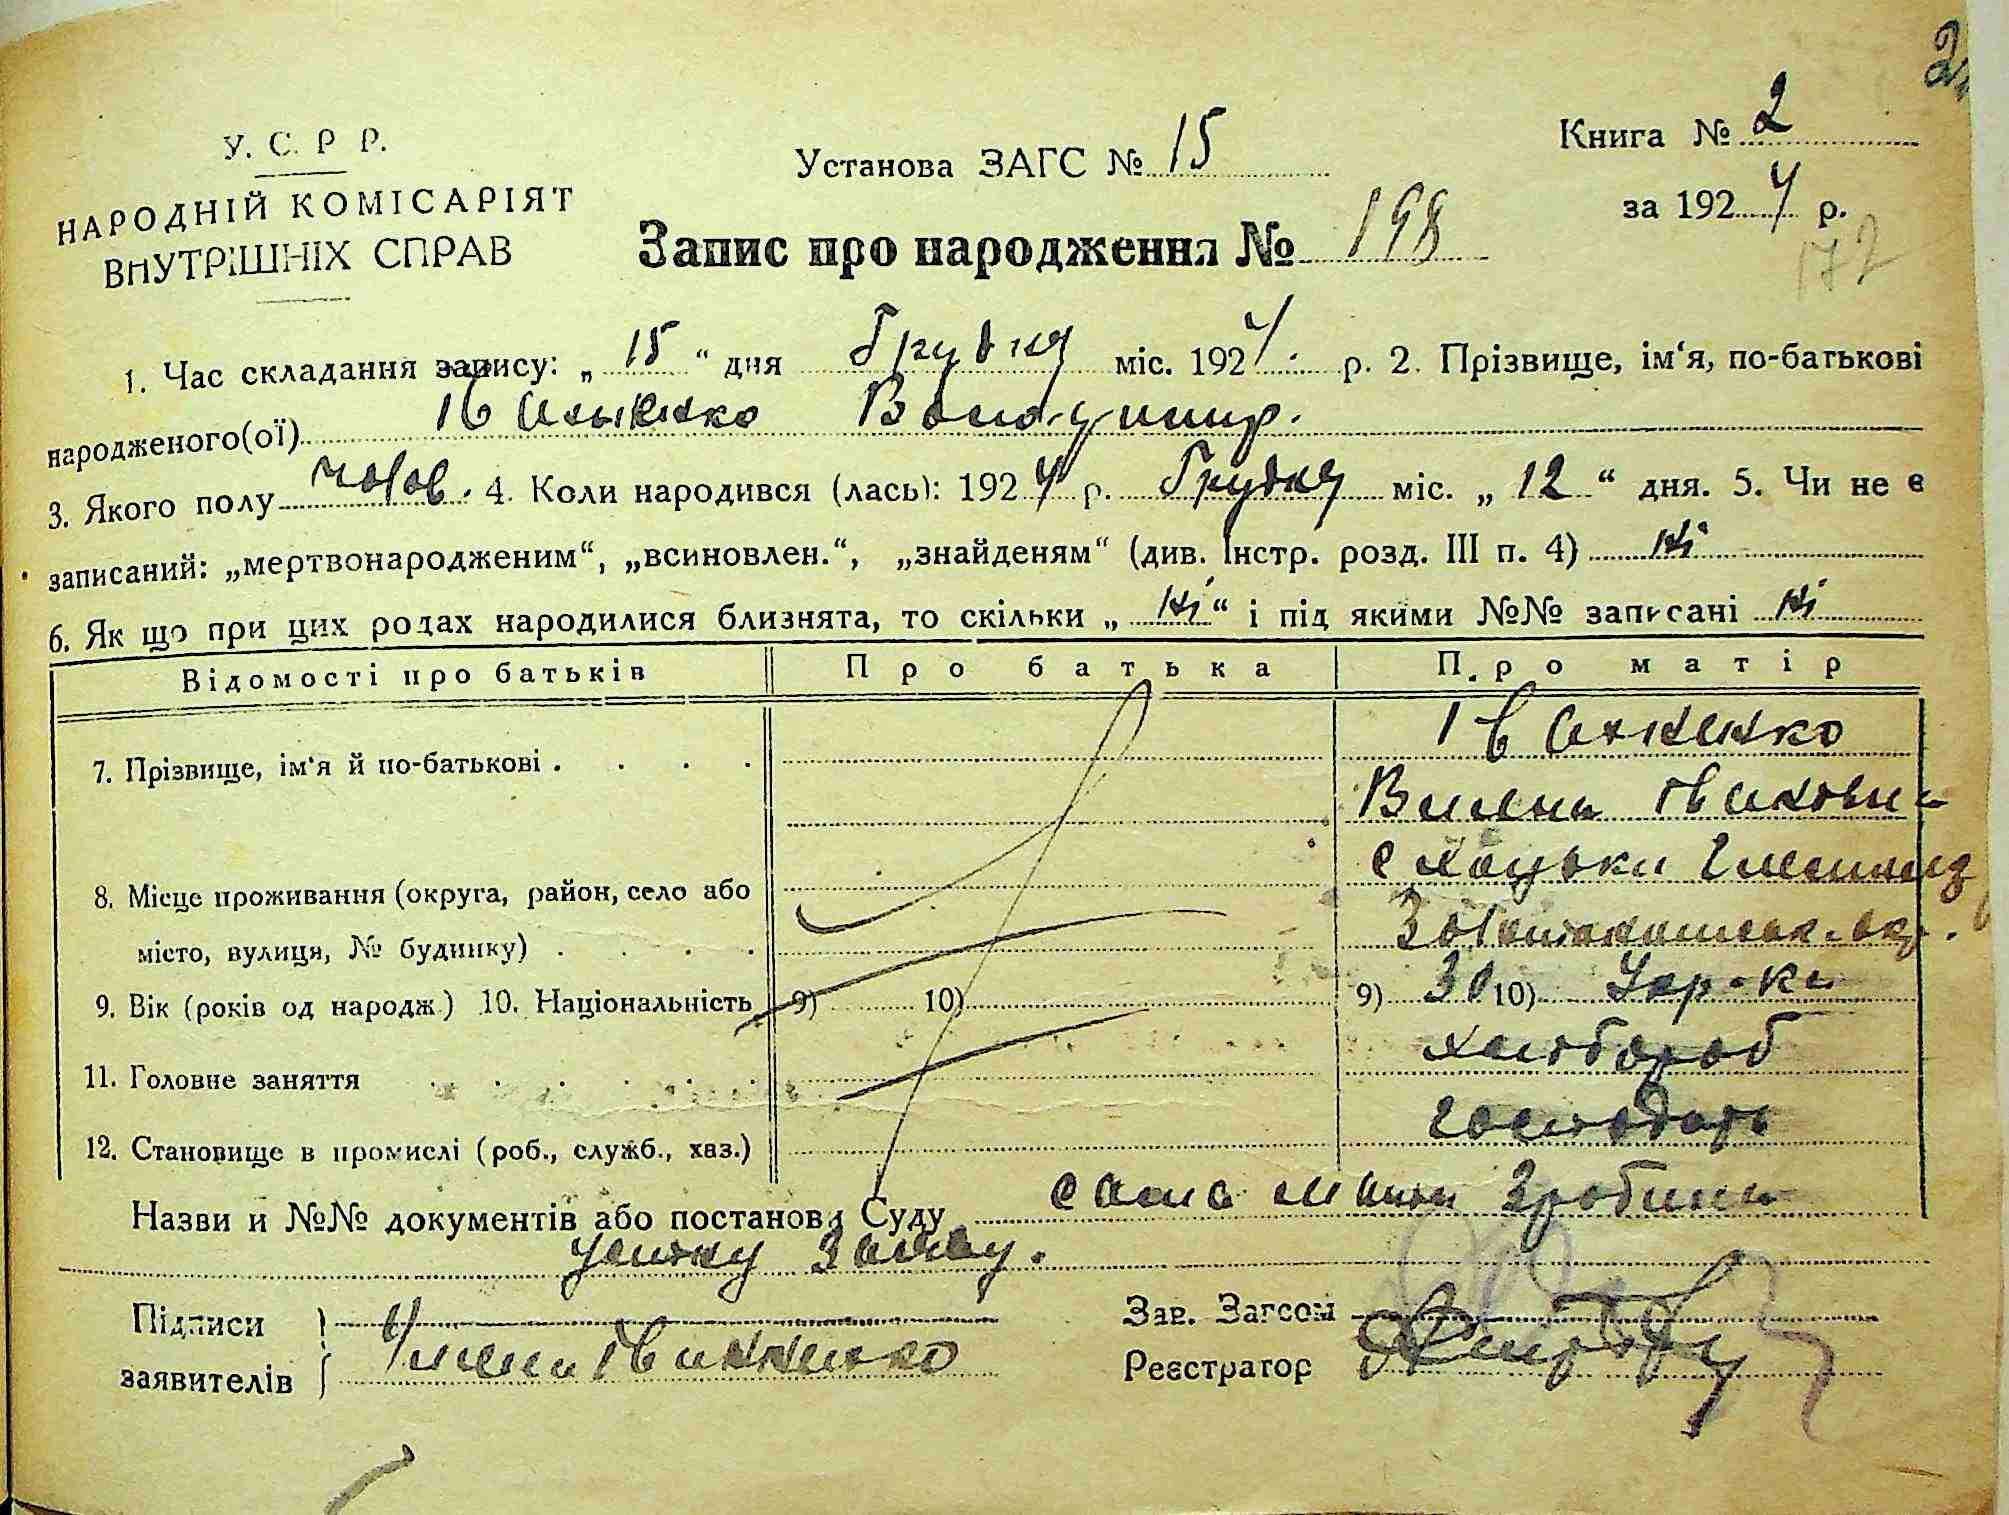 2
У. С. Р Р.
НАРОДНІЙ КОМІСАРІЯТ
ВНУТРІШНІХ СПРАВ
Установа ЗАГС № 15
Книга № 2
за 1924 р.
172
Запис про народження № 198
1. Час складання запису: „ 15 “ дня Грудня міс. 1924 р. 2. Прізвище, ім‘я, по-батькові
народженого(ої) Іваненко Володимир.
3. Якого полу чолов. 4. Коли народився (лась): 1924 р. Грудня міс. „ 12 “ дня. 5. Чи не є
записаний: „мертвонародженим“, „всиновлен.“, „знайденям“ (див. Інстр. розд. III п. 4) ні
6. Як що при цих родах народилися близнята, то скільки „ ні “ і під якими №№ записані ні
Відомості про батьків Про батька Про матір
7. Прізвище, ім‘я й по-батькові . . . . Іваненко
8. Місце проживання (округа, район, село або
місто, вулиця, № будинку) . . . .
9. Вік (років од народж.) 10. Національність 9) 10) 9) 30 10) Укр-ка
11. Головне заняття . . . . . . хлібороб
12. Становище в промислі (роб., служб., хаз.) господарь
Назви й №№ документів або постанови Суду сама мати зробила
устну заяву.
Підписи
заявителів Іваненко
Зав. Загсом
Реєстратор